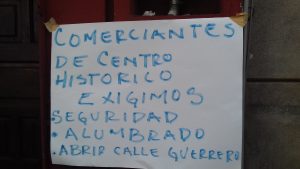 COMERCIANTES
DE CENTRO
HISTORICO
EXIGIMOS
SEGURIDAD
• ALUMBRADO
• ABRIR CALLE GUERRERO